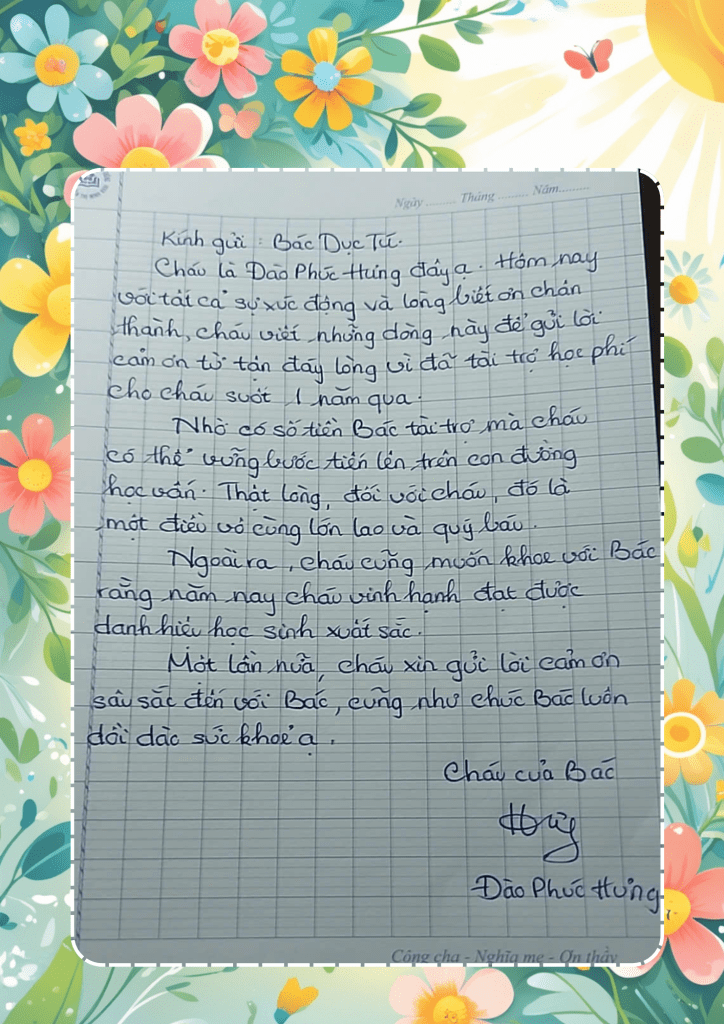 Ngày ......... Tháng ......... Năm.........
Kính gửi : Bác Dục Tú.
Cháu là Đào Phúc Hưng đây ạ. Hôm nay
với tất cả sự xúc động và lòng biết ơn chân
thành, cháu viết những dòng này để gửi lời
cảm ơn từ tận đáy lòng vì đã tài trợ học phí
cho cháu suốt 1 năm qua.
Nhờ có số tiền Bác tài trợ mà cháu
có thể vững bước tiến lên trên con đường
học vấn. Thật lòng, đối với cháu, đó là
một điều vô cùng lớn lao và quý báu.
Ngoài ra, cháu cũng muốn khoe với Bác
rằng năm nay cháu vinh hạnh đạt được
danh hiệu học sinh xuất sắc.
Một lần nữa, cháu xin gửi lời cảm ơn
sâu sắc đến với Bác, cũng như chúc Bác luôn
dồi dào sức khoẻ ạ.
Cháu của Bác
Hưng
Đào Phúc Hưng
Công cha - Nghĩa mẹ - Ơn thầy